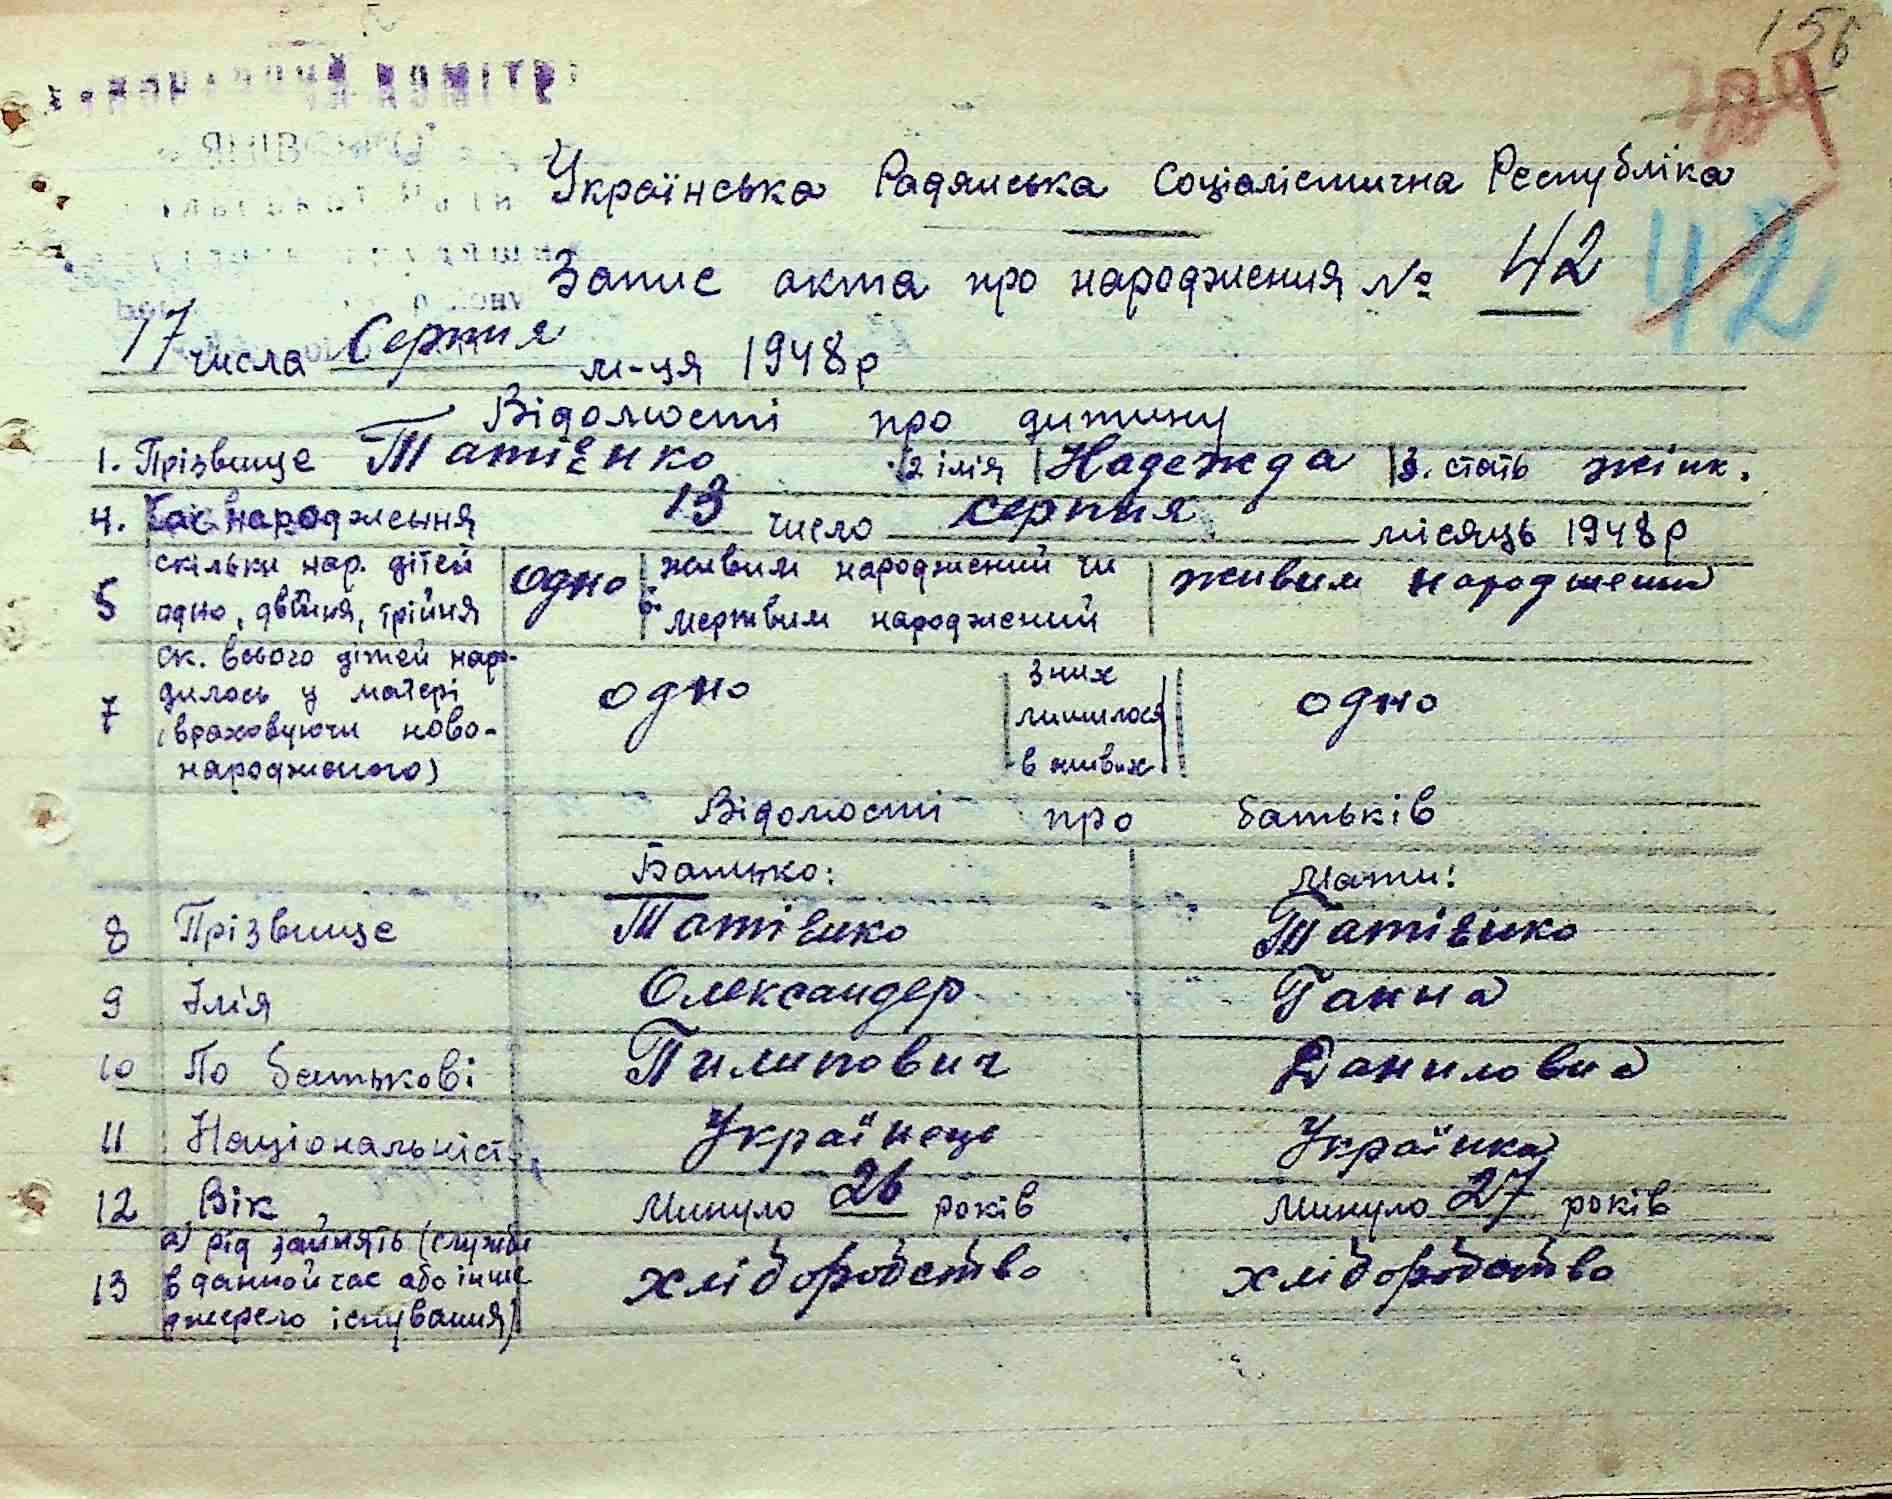 156
284
Українська Радянська Соціалістична Республіка
Запис акта про народження № 42 42
17 числа Серпня м-ця 1948 р
Відомості про дитину
1. Прізвище Татієнко 2 імія Надежда 3. стать жінк.
4. Час народження 13 число серпня місяць 1948 р
5 скільки нар. дітей одно, двійня, трійня одно 6. живим народжений чи мертвим народжений живим народжена
7 ск. всього дітей народилось у матері (враховуючи ново-народженого) одно з них лишилося в живих одно
Відомості про батьків
Батько: Мати:
8 Прізвище Татієнко Татієнко
9 Імія Олександер Ганна
10 По батькові Пилипович Даниловна
11 Національніст Українець Українка
12 Вік Минуло 26 років Минуло 27 років
13 а) рід зайнять (служби в данной час або інше джерело існування) хліборобство хліборобство